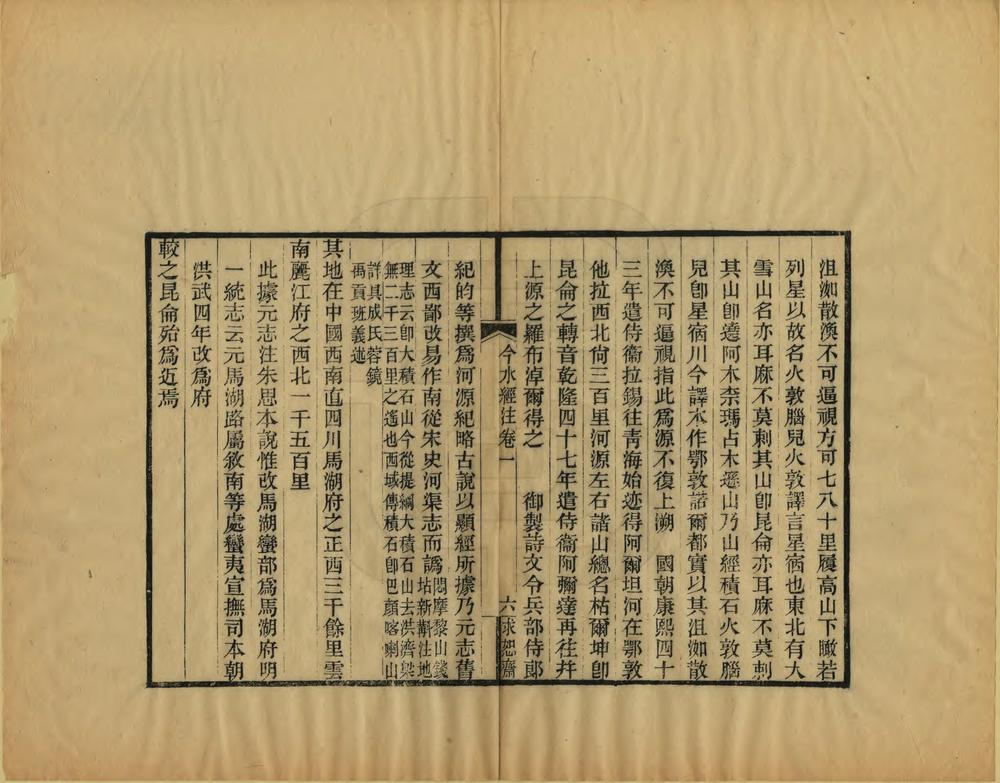 沮洳散渙不可逼視方可七八十里履高山下瞰若
列星以故名火敦腦兒火敦譯言星宿也東北有大
雪山名亦耳麻不莫剌其山卽昆侖亦耳麻不莫剌
其山卽達阿木柰瑪占木遜山乃山經積石火敦腦
兒卽星宿川今譯本作鄂敦諾爾都實以其沮洳散
渙不可逼視指此爲源不復上溯 國朝康熙四十
三年遣侍衞拉錫往青海始迹得阿爾坦河在鄂敦
他拉西北尙三百里河源左右諸山總名枯爾坤卽
昆侖之轉音乾隆四十七年遣侍衞阿彌達再往幷
上源之羅布淖爾得之 御製詩文令兵部侍郞
今水經注卷一 六 求恕齋
紀昀等撰爲河源紀略古說以顯經所據乃元志舊
文西鄙改易作南從宋史河渠志而譌 悶摩黎山錢
坫新斠注地
理志云卽大積石山今從提綱大積石山去洪濟梁
無二千三百里之遙也西域傳積石卽巴顏喀喇山
詳具成氏蓉鏡
禹貢班義述
其地在中國西南直四川馬湖府之正西三千餘里雲
南麗江府之西北一千五百里
此據元志注朱思本說惟改馬湖蠻部爲馬湖府明
一統志云元馬湖路屬敘南等處蠻夷宣撫司本朝
洪武四年改爲府
較之昆侖殆爲近焉